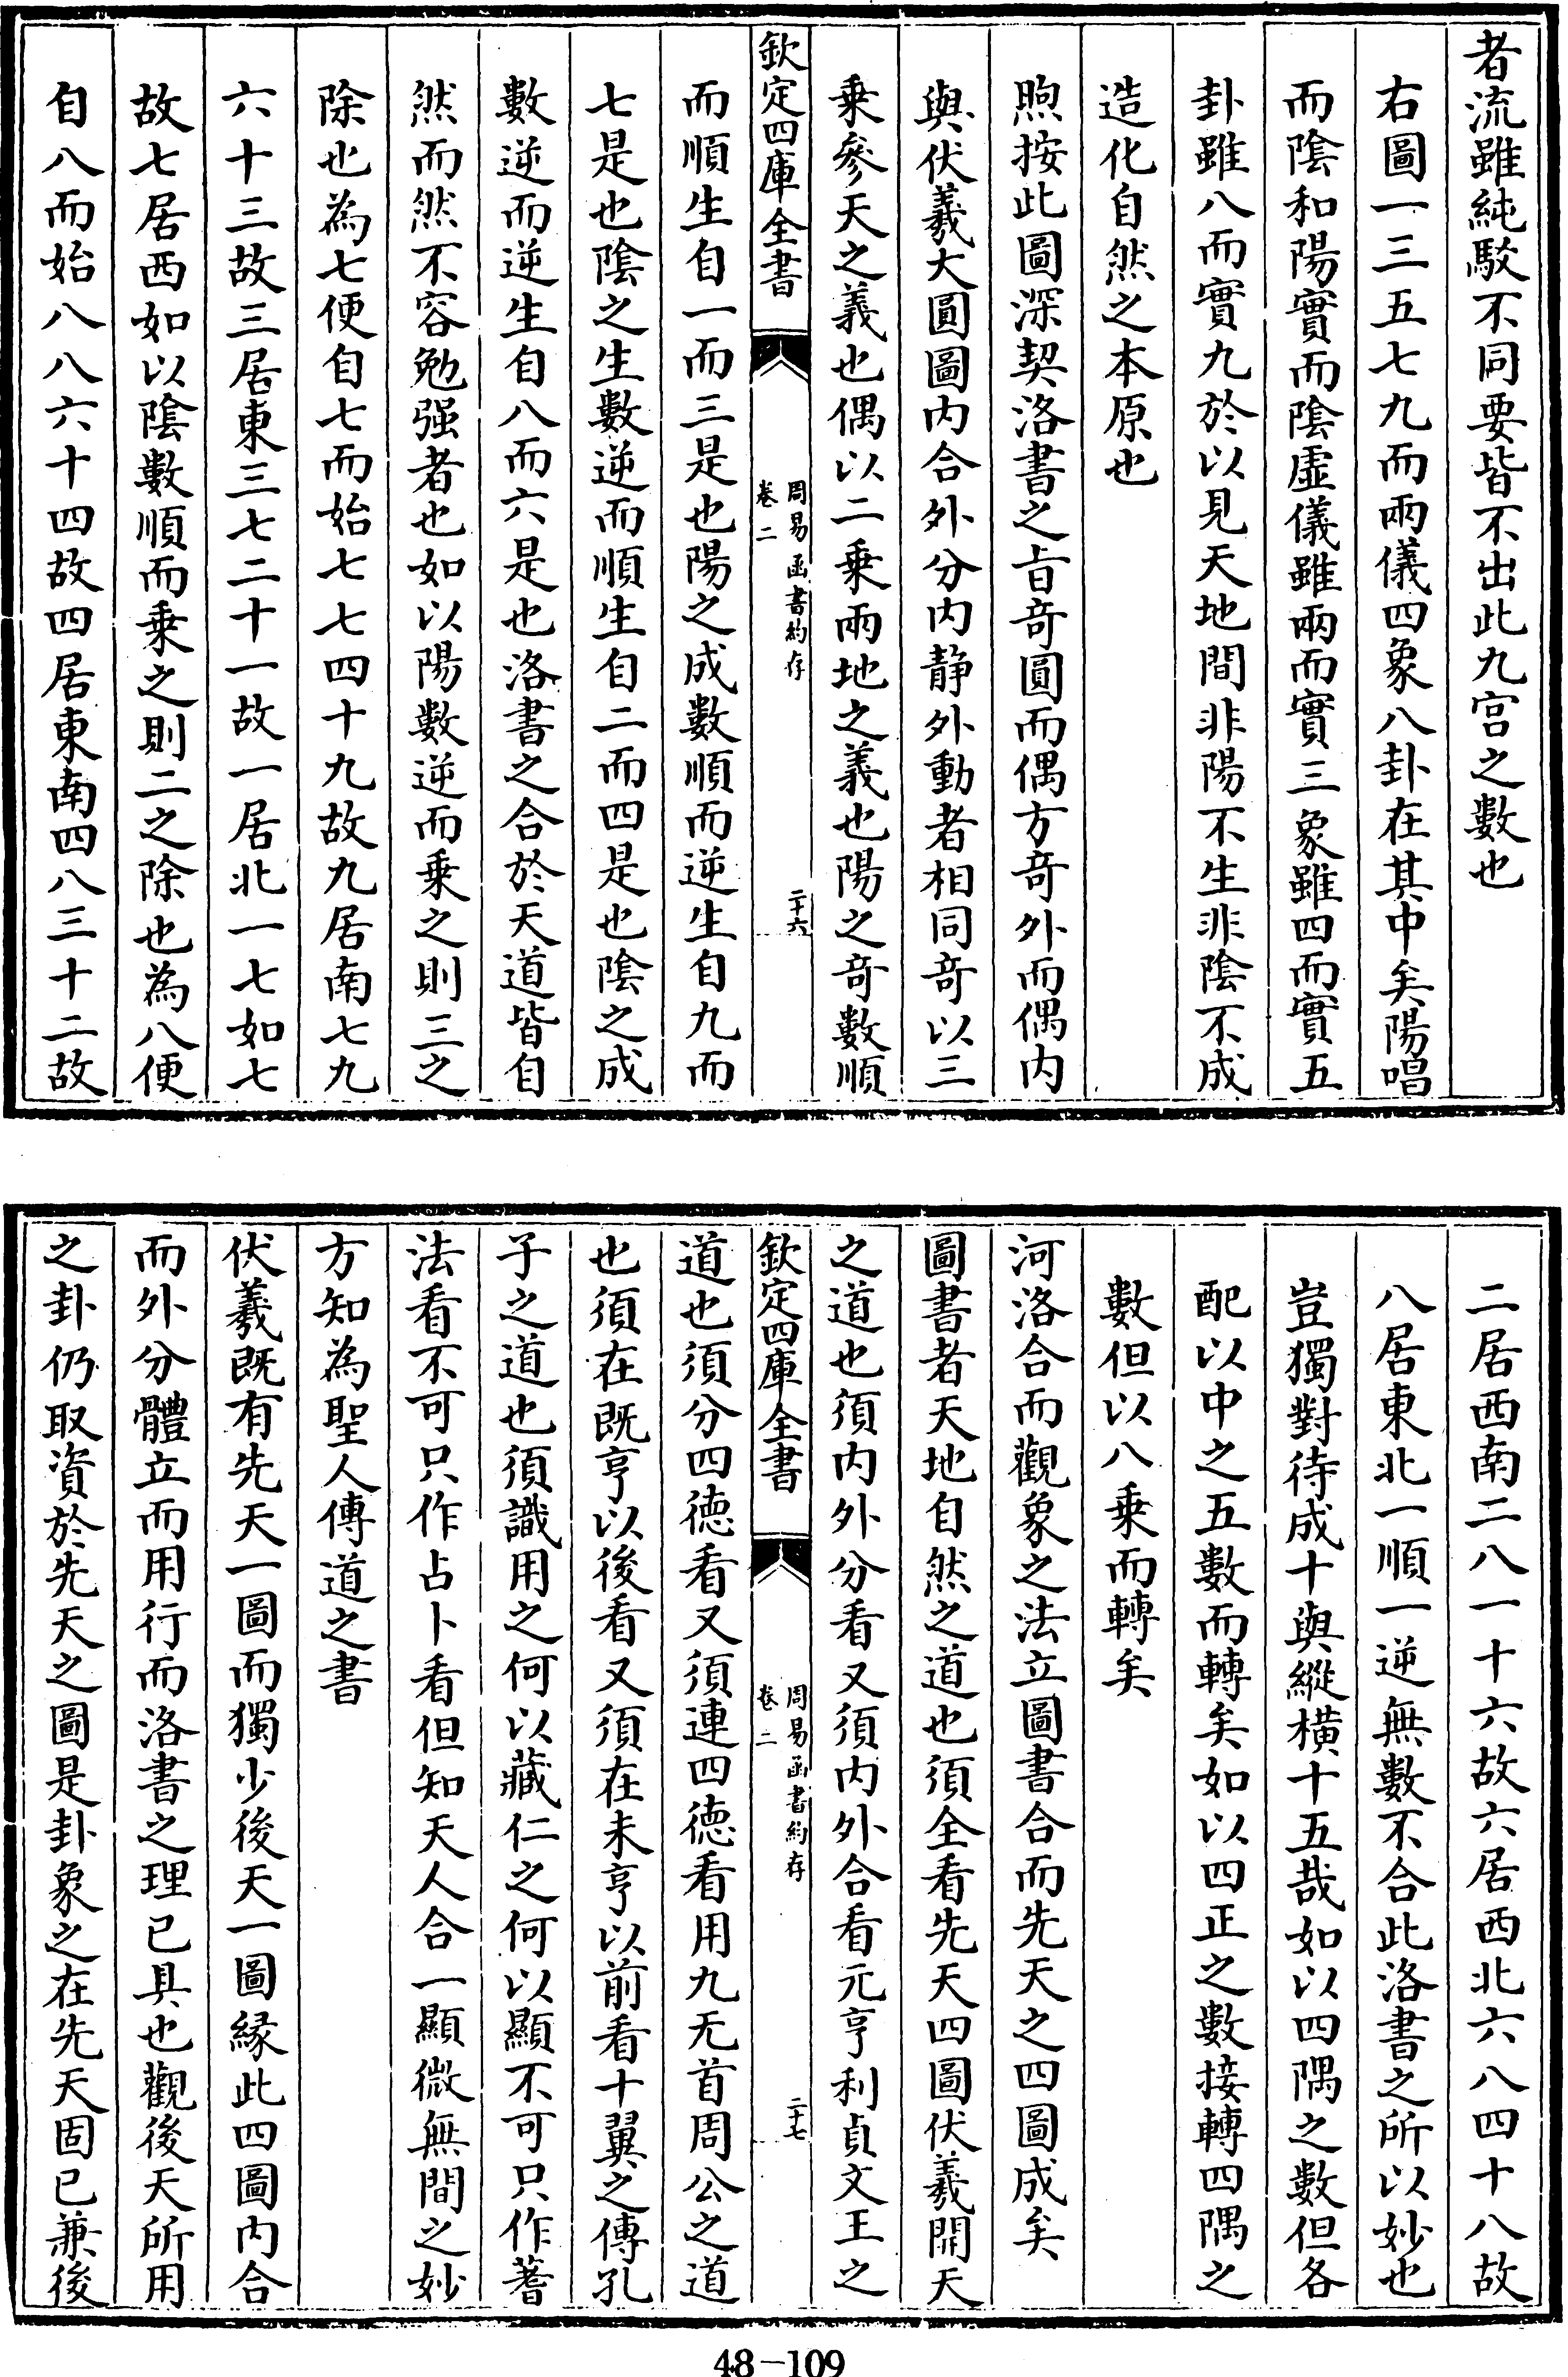 者流雖純駁不同要皆不出此九宮之數也
右圖一三五七九而兩儀四象八卦在其中矣陽唱
而陰和陽實而陰虛儀雖兩而實三象雖四而實五
卦雖八而實九於以見天地間非陽不生非陰不成
造化自然之本原也
煦按此圖深契洛書之旨奇圓而偶方奇外而偶內
與伏羲大圓圖內合外分內靜外動者相同奇以三
乘參天之義也偶以二乘兩地之義也陽之奇數順
欽定四庫全書
周易函書約存
卷二
二十六
而順生自一而三是也陽之成數順而逆生自九而
七是也陰之生數逆而順生自二而四是也陰之成
數逆而逆生自八而六是也洛書之合於天道皆自
然而然不容勉强者也如以陽數逆而乘之則三之
除也為七便自七而始七七四十九故九居南七九
六十三故三居東三七二十一故一居北一七如七
故七居西如以陰數順而乘之則二之除也為八便
自八而始八八六十四故四居東南四八三十二故
二居西南二八一十六故六居西北六八四十八故
八居東北一順一逆無數不合此洛書之所以妙也
豈獨對待成十與縱橫十五哉如以四隅之數但各
配以中之五數而轉矣如以四正之數接轉四隅之
數但以八乘而轉矣
河洛合而觀象之法立圖書合而先天之四圖成矣
圖書者天地自然之道也須全看先天四圖伏羲開天
之道也須內外分看又須內外合看元亨利貞文王之
欽定四庫全書
周易函書約存
卷二
二十七
道也須分四德看又須連四德看用九无首周公之道
也須在既亨以後看又須在未亨以前看十翼之傳孔
子之道也須識用之何以藏仁之何以顯不可只作蓍
法看不可只作占卜看但知天人合一顯微無間之妙
方知為聖人傳道之書
伏羲既有先天一圖而獨少後天一圖緣此四圖內合
而外分體立而用行而洛書之理已具也觀後天所用
之卦仍取資於先天之圖是卦象之在先天固已兼後
48-109